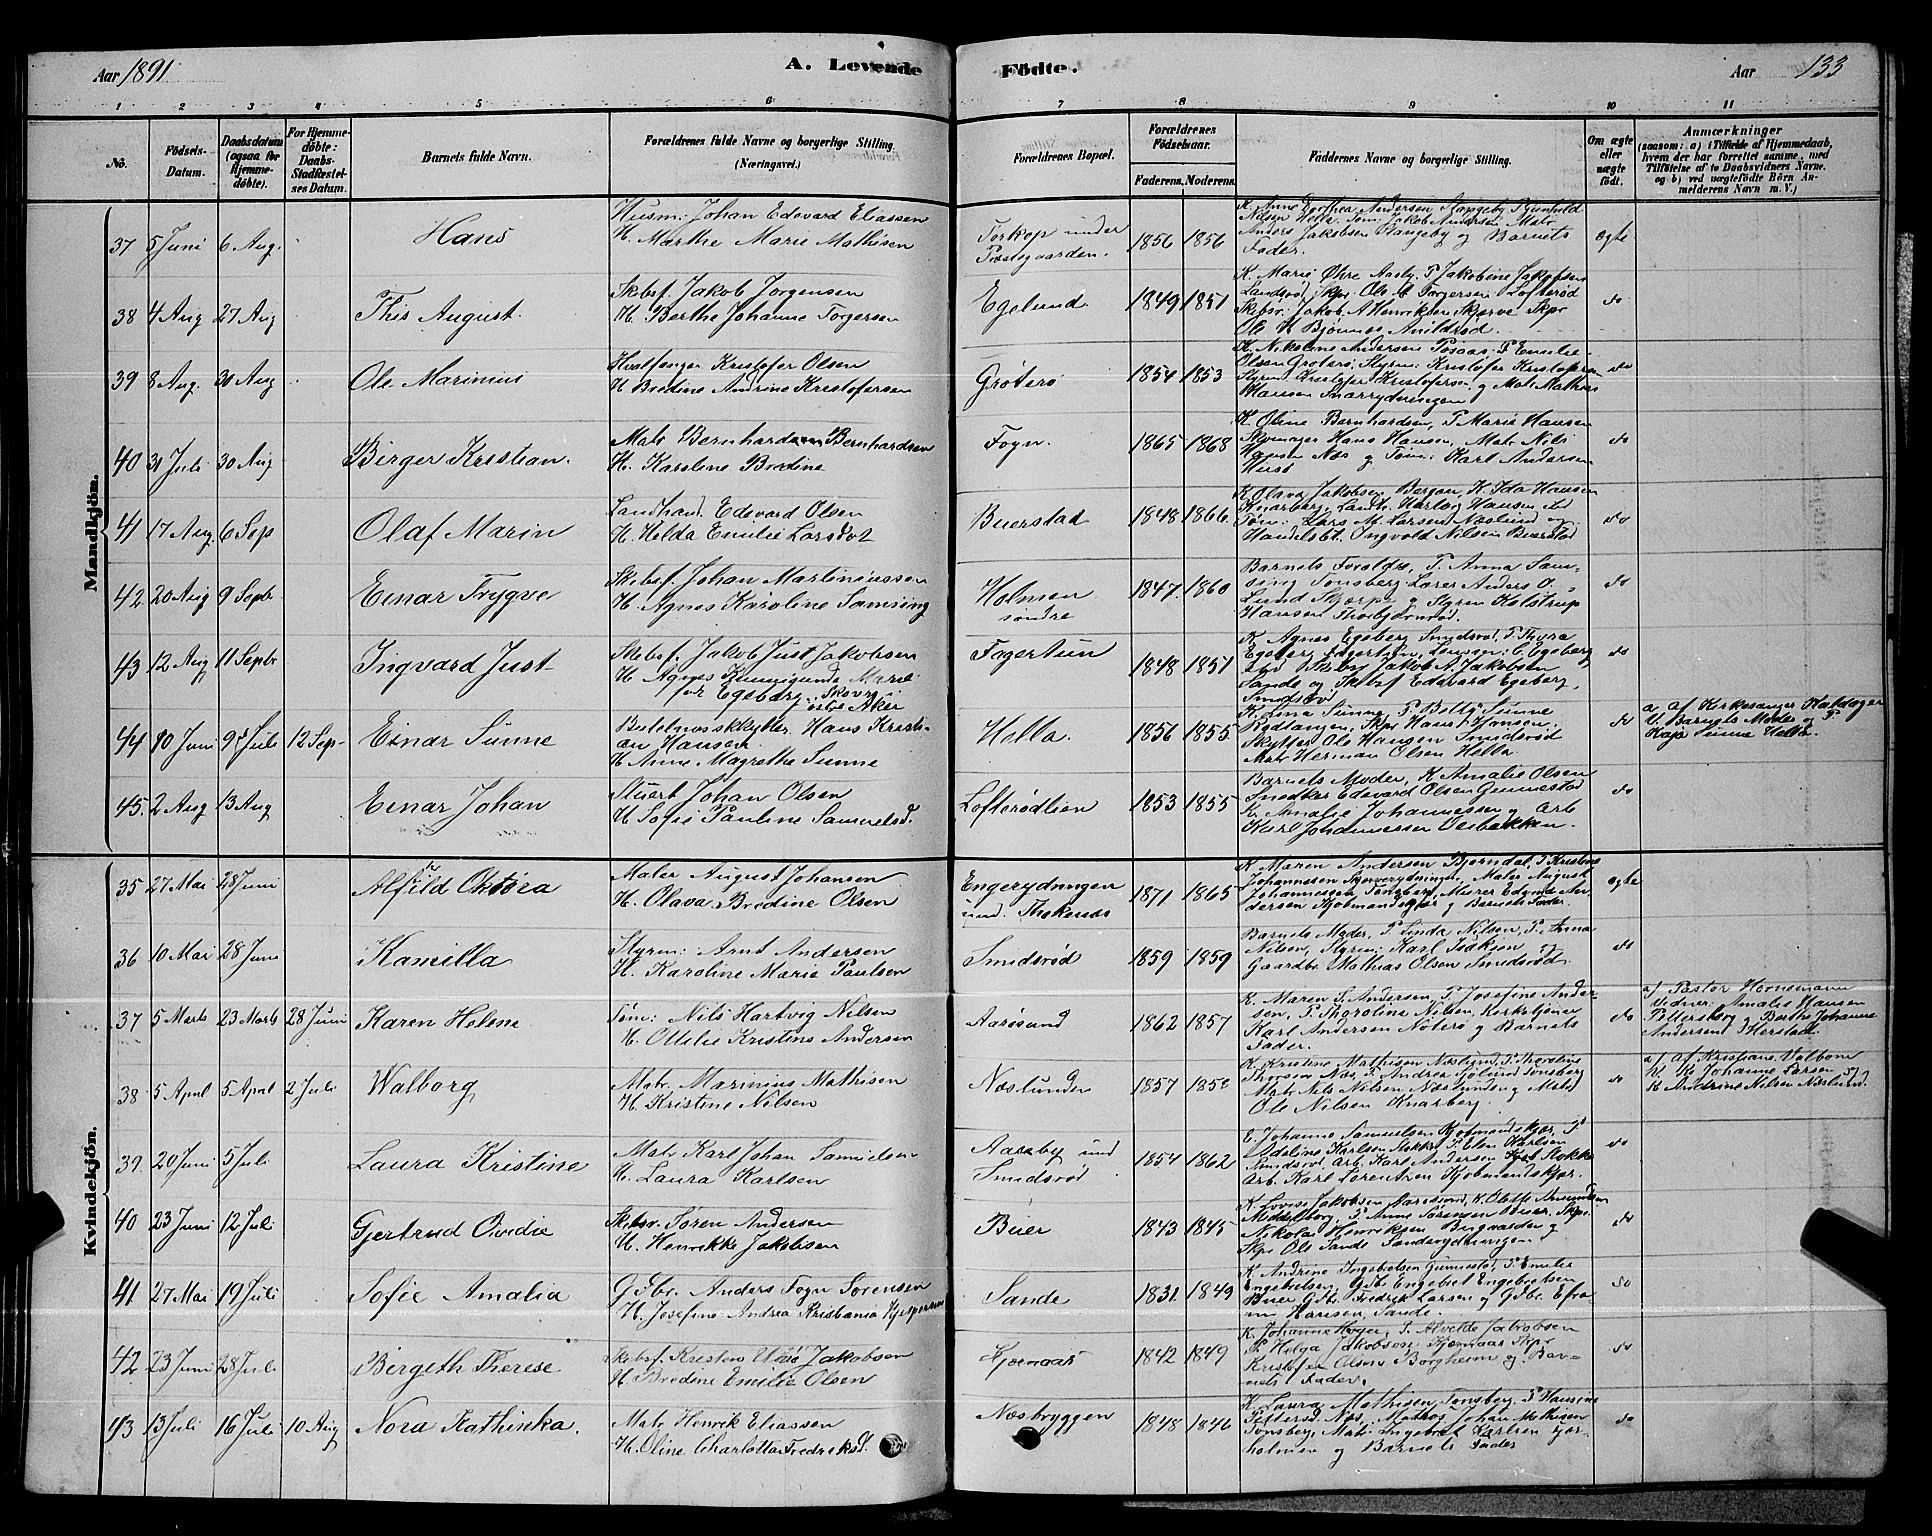 Aar 1891
A. Levende
Fødte.
Aar 133
1 2 3 4 5 6 7 8 9 10 11
No.
Fødsels-Datum.
Daabsdatum (ogsaa for Hjemme-døbte).
For Hjemme-døbte: Daabs-Stadfæstel-ses Datum.
Barnets fulde Navn.
Forældrenes fulde Navne og borgerlige Stilling.
(Næringsvei.)
Forældrenes Bopæl.
Forældrenes Fødselsaar.
Faderens. Moderens.
Faddernes Navne og borgerlige Stilling.
Om ægte eller uægte født.
Anmærkninger
(saasom: a) i Tilfælde af Hjemmedaab,
hvem der har forrettet samme, med
Tilføielse af to Daabsvidners Navne,
og b) ved uægtefødte Børn An-
melderens Navn m. V.)
Mandkjön.
37 5 Juni 6 Aug. Hans
Husm: Johan Edevard Eliassen
H. Marthe Marie Mathisen
Torkop under
Præstegaarden.
1856 1856
K. Anne Dorthea Andersen Stangeby
Nilsen Hella Tøm: Jakob Andersen Matr
Anders Jakobsen Stangeby og Barnets
Fader.
Ægte
38 4 Aug 27 Aug This August.
Skbsf. Jakob Jørgensen
H. Berthe Johanne Torgersen
Egelund
1849 1851
K. Marie Øhre Aasly. P Jakobine Jakobsen
Landsrød, Skpr Ole M Torgersen Lofterød
Skbsr. Jakob A Henriksen Skjerve Skpr
Ole H Bjønnes Anildrød.
do
39 8 Aug. 30 Aug Ole Marinius
Hvalfanger Kristofer Olsen
H Bredine Andrine Kristofersen
Grøterø
1854 1853
K. Nikoline Andersen P Emilie
Olsen Grøterø, Styrm: Kristofer Kristofersen
Styrm Kristofer Kristofersen og Matr Mathias
Hansen Snarrydningen
do
40 31 Juli 30 Aug Birger Kristian.
Matr Bernhard Bernhardsen
H. Karoline Bredine
Fogn.
1865 1868
K Oline Bernhardsen, P Marie Hansen
Skomager Hans Hansen, Matr Nils
Hansen Næs og Tøm: Karl Andersen
Husø
do
41 17 Aug. 6 Sep Olaf Marin
Landhand. Edevard Olsen
H. Helda Emilie Larsdat
Buerstad
1848 1866.
K Olava Jakobsen Bergan, K. Ida Hansen
Knarberg, Landh. Hartvig Hansen
Tøm: Lars M. Larsen Næslund og
Handelsbt. Ingvold Nilsen Buerstad
do
42 20 Aug 9 Septr Einar Trygve
Skbsf. Johan Martiniussen
H. Agnes Karoline Samsing
Holmen
søndre
1847. 1860
Barnets Forældre, P. Anna Sam-
sing Tønsberg Lærer Anders O.
Lund Skjerpe og Styrm Kolstrup
Hansen Thorbjørnrød.
do
43 12 Aug 11 Septr Ingvard Just
Skbsf. Jakob Just Jakobsen
H Agnes Kunnigunde Marie
Egeberg
Fagertun
1848 1851
K. Agnes Egeberg Smidsrød, P. Thora
Egeberg Fagertun, C. Egeberg
Jakob A. Jakobsen
Sande og Skbsf Edevard Egeberg,
Smidsrø
do
44 10 Juni 9d Juli 12 Sep Einar Sunne
Hans Kristi-
an Hansen
H Anne Magrethe Sunne
Hella.
1856 1855.
K. Lina Sunne, P Betty Sunne
Rødtangen, Skpr Hans Hansen,
Skytter Ole Hansen Smidsrød
Matr Herman Olsen Hella
do
a. af Kirkesanger
V. Barnets Moder og P.
Kaja Sunne Hella.
45. 2 Aug 13 Aug Einar Johan
Stuert Johan Olsen
H Sofie Pauline Samuelsd.
Lofterødlien
1853 1855
Barnets Moder, K Amalie Olsen
Snedker Edevard Olsen Gunnestad
K. Amalie Johannessen og Arb
Karl Johannessen Oserbakken.
do
Kvindekjön.
35 27 Mai 28 Juni Alfhild Oktøra
Maler August Johansen
H. Olava Bredine Olsen
Engerydningen
und. Thokenæs
1871 1865
K. Maren Andersen Bjørndal, P Kristine
Johannessen Skjerverydningen, Maler August
Johannessen Tønsberg, Murer Edvard An-
dersen Kjøbmandskjær og Barnets Fader.
Ægte
36 10 Mai 28 Juni Kamilla
Styrm: Arnt Andersen
H. Karoline Marie Paulsen
Smidsrød
1859 1859
Barnets Moder, P. Linda Nilsen, P. Anna
Nilsen, Styrm: Karl Isaksen og
Gaardbr Mathias Olsen Smidsrød.
do
37 5 Marts 23 Marts 28 Juni Karen Helene
Tøm: Nils Hartvig Nilsen
H. Ottilie Kristine Andersen
Aarøsund
1862 1857
K. Maren S. Andersen, P Josefine Ander-
sen, P Thoroline Nilsen, Kirketjener
Karl Andersen Nøterø og Barnets
Fader.
do
a) Pastor Hornemann
Vidner: Amalie Hansen
Pettersborg og Berthe Johanne
Andersen Herstad.
38 5 April 5 April 2 Juli Walborg
Matr. Marinius Mathisen
H. Kristine Nilsen
Næslunden
1857 1858
K. Kristine Mathisen Næslund, P. Thorstine
Thorsen Næs, P. Andrea Sjølund Tønsberg
Matr Nils Nilsen Næslunden og Matr
Ole Nilsen Knarberg.
do
a) af Kristiane Valbom
V. K Johanne Larsen og
K Andrine Nilsen Næslund.
39. 20 Juni 5 Juli Laura Kristine
Matr Karl Johan Samuelsen
H. Laura Karlsen
Aaseby und
Smidsrød
1854 1862
E. Johanne Samuelsen Kjøbmandskjær, P.
Adeline Karlsen Stokke, P. Elen Karlsen
Smidsrød, Arb. Karl Andersen Stokke
Arb. Karl Lorentzen Kjøbmandskjær.
do
40 23 Juni 12 Juli Gjertrud Ovidia
Skbsr. Søren Andersen
H. Henrikke Jakobsen
Buer
1843 1845
K. Lovise Jakobsen Aarøsund, K. Olette Amundsen
Meddelborg, P. Anne Sørensen Buer, Skpr.
Nikolai Henriksen og
Skpr Ole Sande Sanderydningen
do
41 27 Mai 19 Juli Sofie Amalia
Gdbr. Anders Fogn Sørensen
H. Josefine Andrea Kristiania Kjespersen
Sande
1831 1849
K. Andrine Ingebretsen Gunnestad, P Emilie
Engebretsen, Gdbr Engebret Engebretsen
Buer Gdbr. Fredrik Larsen og Gdbr. Efra-
im Hansen, Sande.
do
42 23 Juni 28 Juli Birgeth Therese
Skbsf. Kristen Jakobsen
H Bredine Emilie Olsen
Kjærnaas
1842 1849
K. Johanne Høyer, P. Alvilde Jakobsen
P. Helga Jakobsen, Kjærnaas Skpr
Kristofer Olsen Borgheim og Bar-
nets Fader.
do
43 13 Juli 16 Juli 10 Aug Nora Kathinka.
Matr Henrik Eliassen
H. Oline Charlotta Fredriksd.
Næsbryggen
1848 1846
K. Laura Mathisen Tønsberg, P Hansine
Petterød Næs, Matros Johan Mathisen
Tønsberg, Matr. Ingebret Karlsen
holmen og Barnets Fader
do